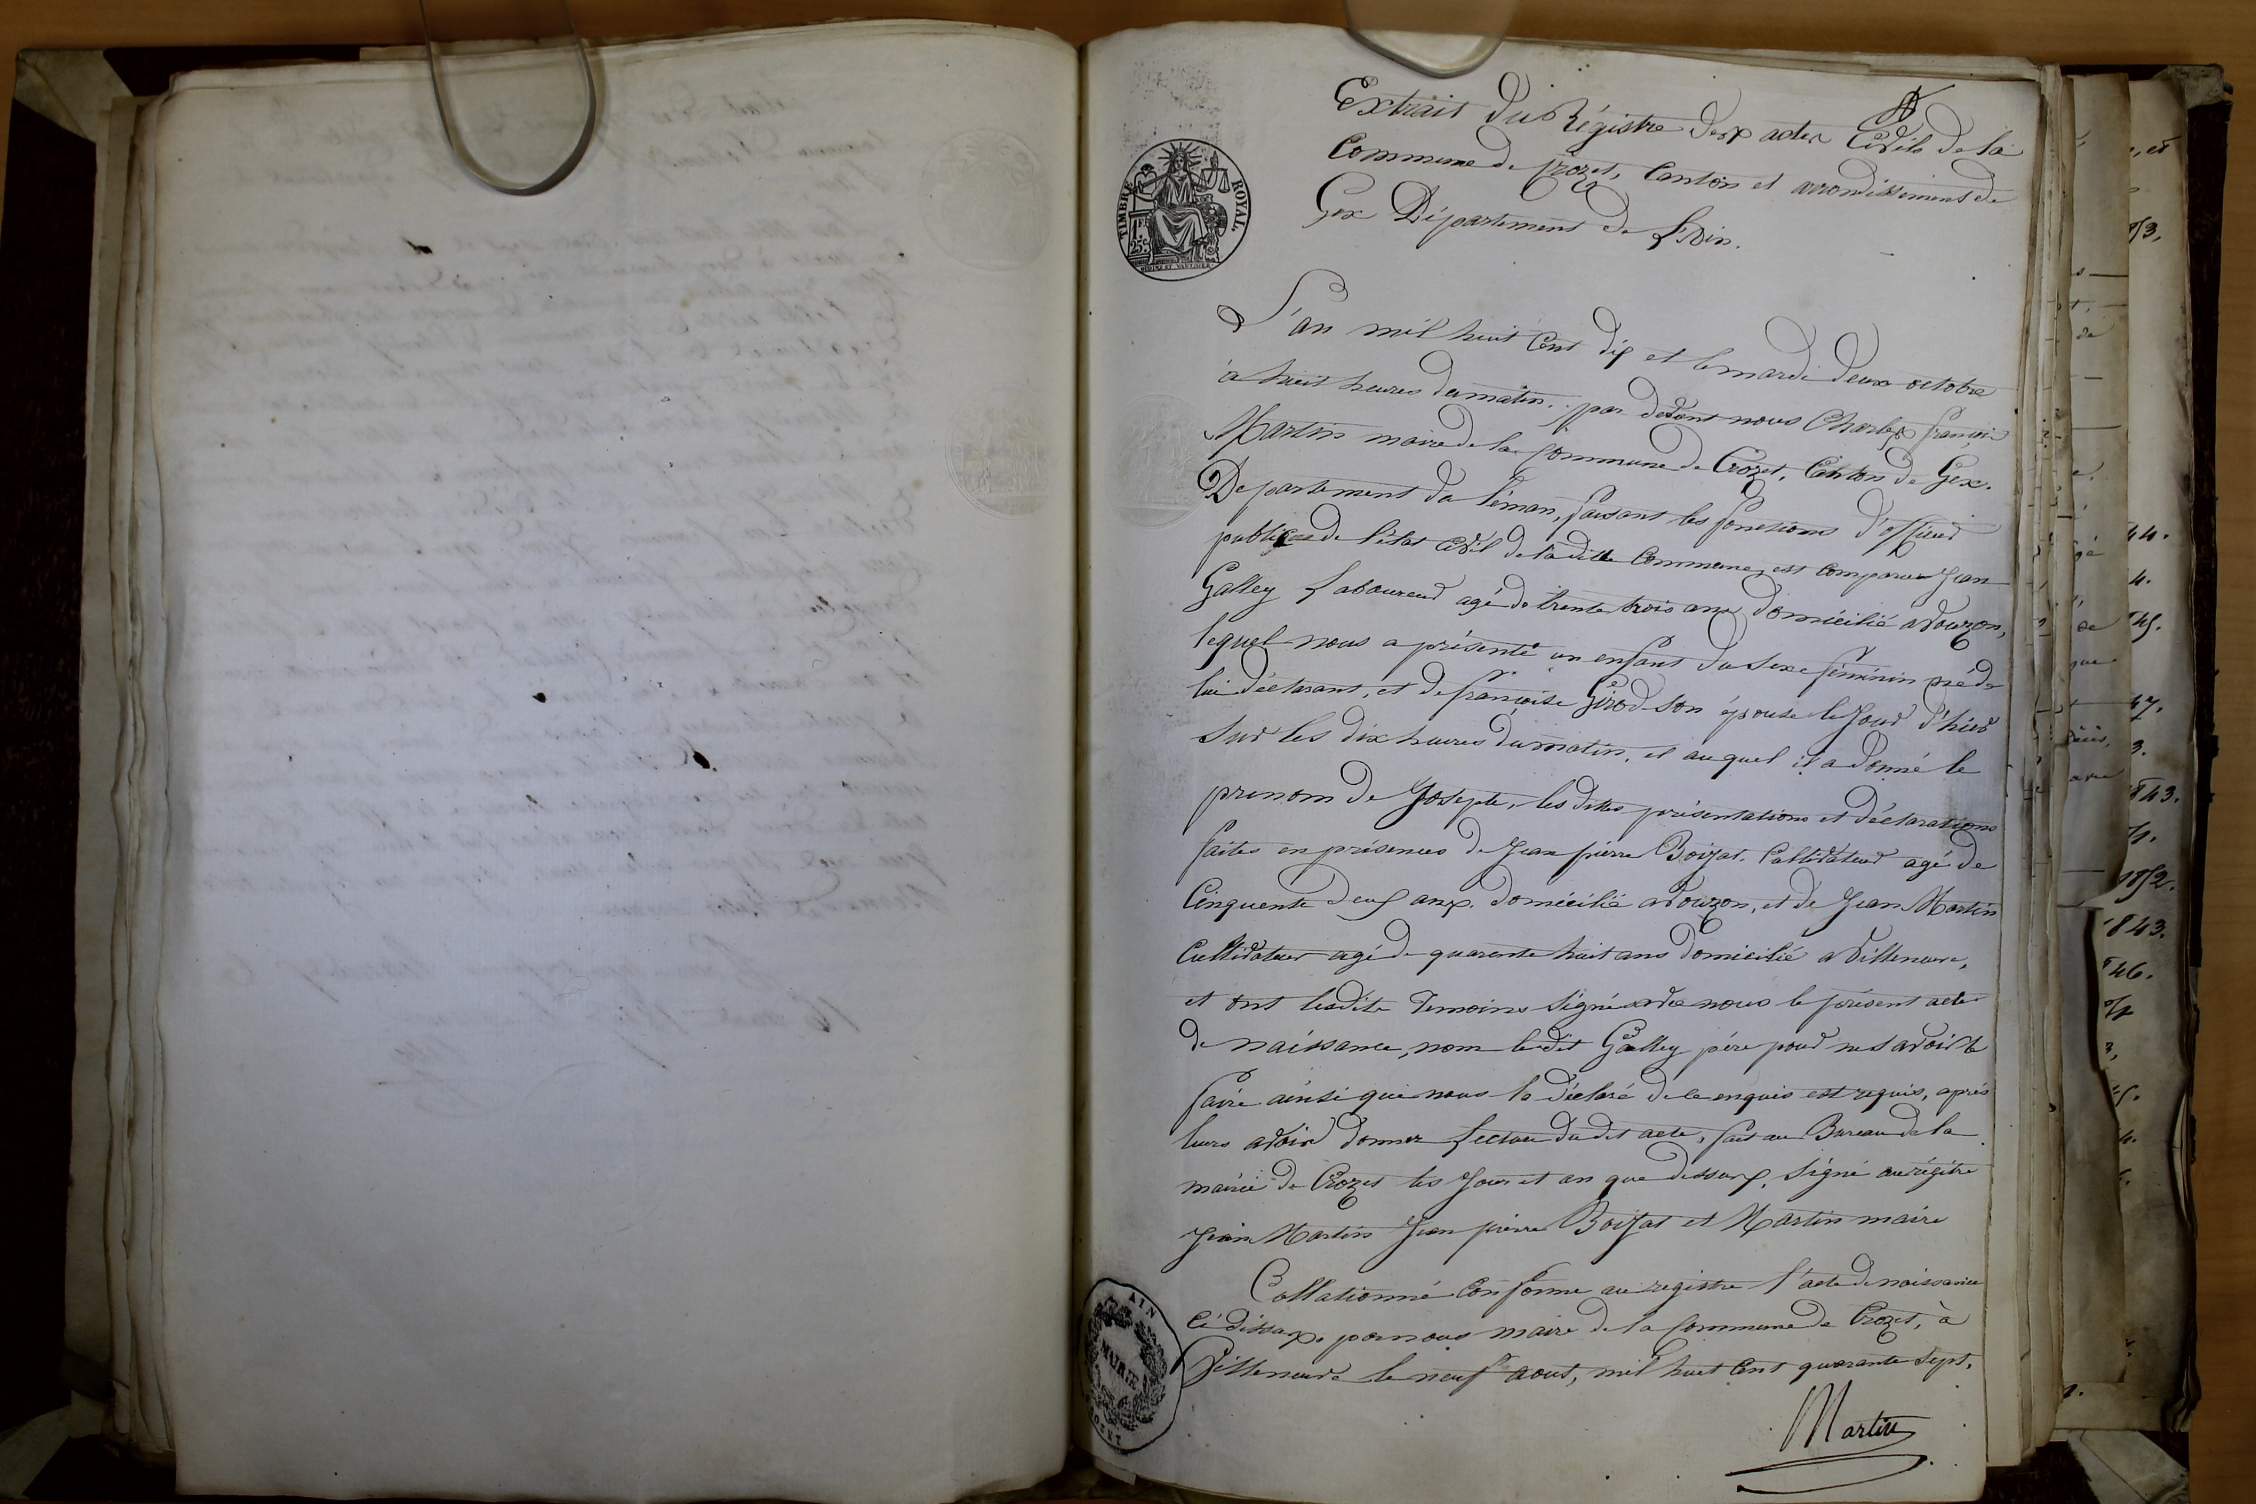 Extrait du Régistre des actes Civils de la
Commune de Crozet, Canton et arrondissement de
Gex Département de l'Ain.
TIMBRE ROYAL.
1 Fr. 25 c.
L'an mil huit Cent dix et le mardi deux octobre
à huit heures du matin. par devant nous Charles françois
Martin maire de la Commune de Crozet, Canton de Gex.
Département du Léman, faisant les fonctions d'officier
public de l'état Civil de la ditte Commune, est comparu Jean
Galley Laboureur agé de trente trois ans domicilié a Vouzon,
lequel nous a présenté un enfant du sexe féminin né de
lui déclarant, et de françoise Girod son épouse le Jour d'hier
sur les dix heures du matin, et auquel il a donné le
prenom de Josepte, les dittes présentations et déclarations
faites en présences de Jean pierre Boizat. Cultivateur agé de
Cinquente deux ans. domicilié a Vouzon, et de Jean Martin
Cultivateur agé de quarente huit ans Domicilié a Villeneuve,
et ont lesdits Temoins signé avec nous le présent acte
de naissance, nom ledit Galley père pour ne savoir le
faire ainsi que nous l'a déclaré de ce enquis est requis, après
leurs avoir donner lecture du dit acte, fait au Bureau de la
mairie de Crozet les Jour et an que dessus, signé au régitre
Jean Martin Jean pierre Boizat et Martin maire
Collationné Conforme au registre l'acte de naissance
Ci dessus. par nous maire de la Commune de Crozet, à
Villeneuve le neuf aout, mil huit Cent quarante sept.
Martin
AIN
MAIRIE
CROZET